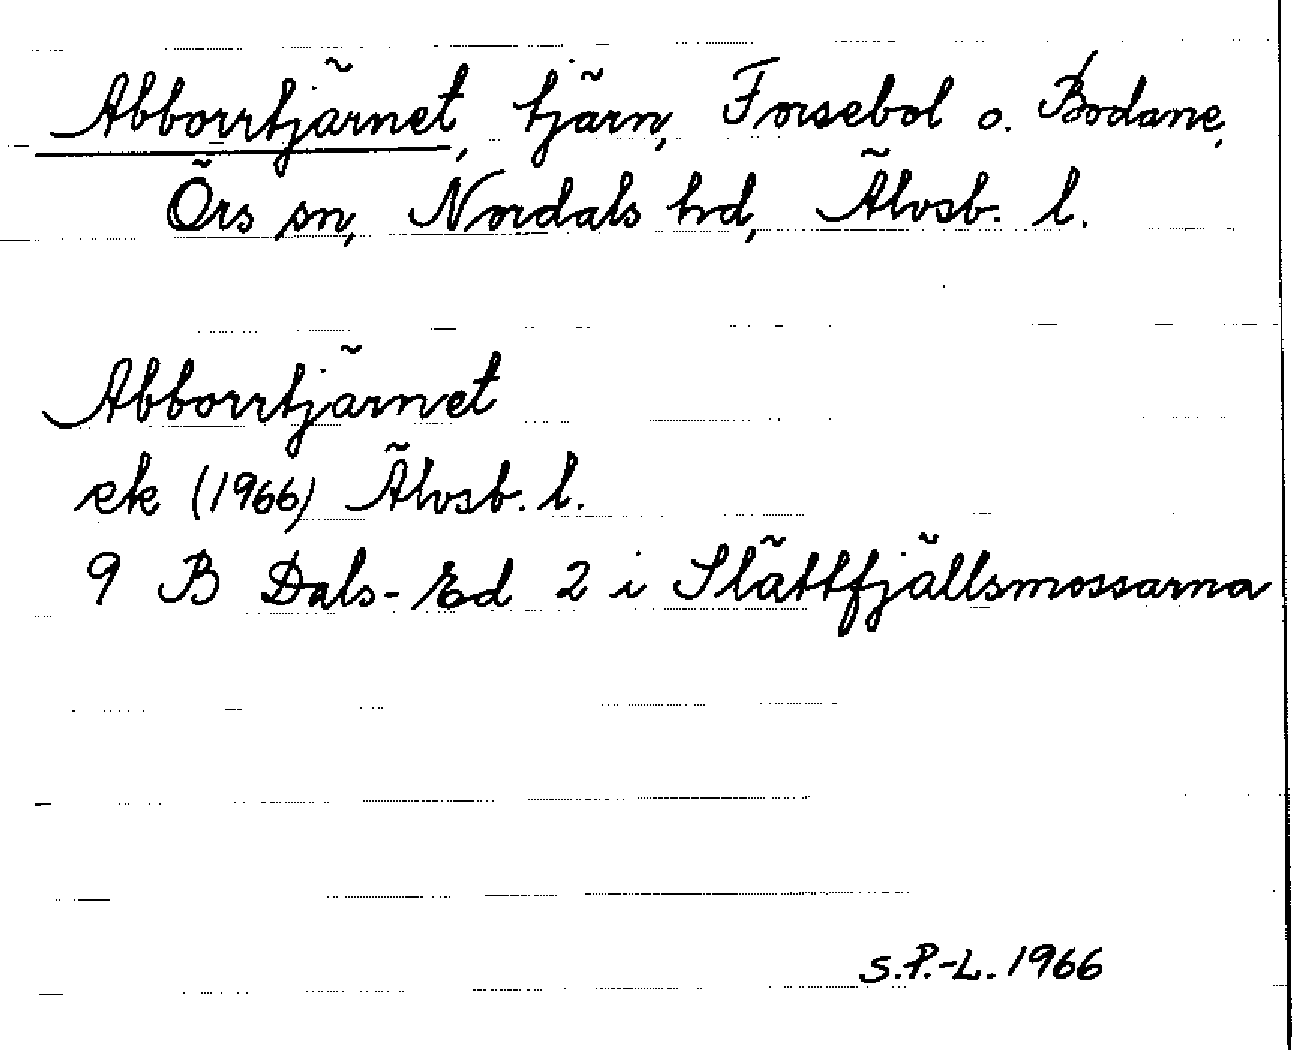 Abborrtjärnet, tjärn, Forsebol o. Bodane,
Örs sn, Nordals hd, Älvsb. l.
Abborrtjärnet
ek (1966) Älvsb. l.
9 B Dals-Ed 2 i Slättfjällsmossarna
S.P.-L. 1966